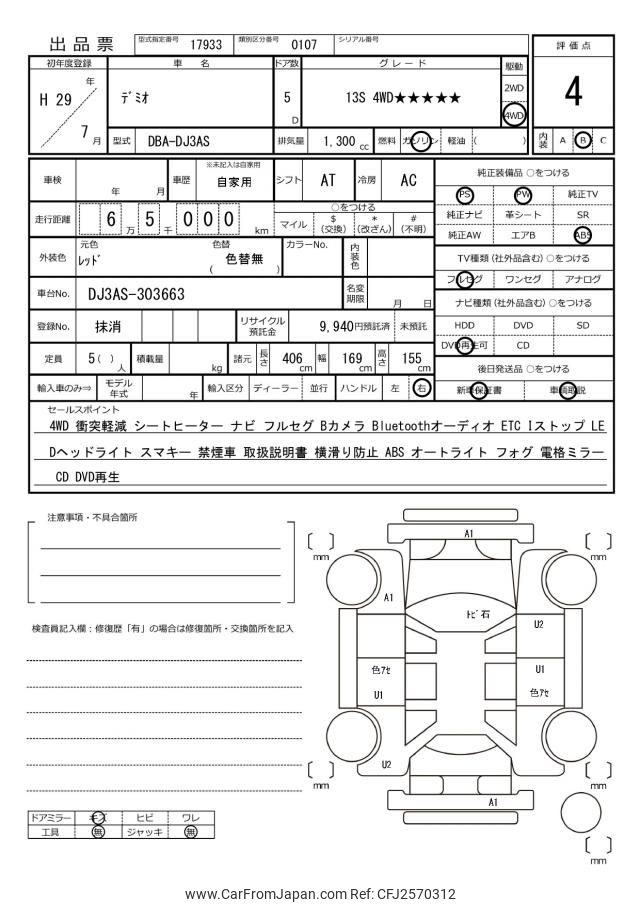 出品票 型式指定番号 17933 類別区分番号 0107 シリアル番号
評価点
4
内装 A B C
初年度登録 車名 ドア数 グレード 駆動
H 29 年 7 月
デミオ
5 D
13S 4WD★★★★★
2WD
4WD
型式 DBA-DJ3AS 排気量 1,300 cc 燃料 ガソリン 軽油 ( )
車検 年 月 車歴 ※未記入は自家用 自家用 シフト AT 冷房 AC
純正装備品 ○をつける
PS PW 純正TV
純正ナビ 革シート SR
純正AW エアB ABS
走行距離 6 万 5 千 0 0 0 km
○をつける
マイル $ (交換) * (改ざん) # (不明)
外装色 元色 レッド 色替 ( 色替無 ) カラーNo. 内装色
TV種類 (社外品含む) ○をつける
フルセグ ワンセグ アナログ
車台No. DJ3AS-303663 名変期限 月 日
ナビ種類 (社外品含む) ○をつける
HDD DVD SD
DVD再生可 CD
登録No. 抹消 リサイクル預託金 9,940円預託済 未預託
定員 5 ( ) 人 積載量 kg 諸元 長さ 406 cm 幅 169 cm 高さ 155 cm
後日発送品 ○をつける
新車保証書 車輌取説
輸入車のみ⇒ モデル年式 年 輸入区分 ディーラー 並行 ハンドル 左 右
セールスポイント
4WD 衝突軽減 シートヒーター ナビ フルセグ Bカメラ Bluetoothオーディオ ETC Iストップ LE
Dヘッドライト スマキー 禁煙車 取扱説明書 横滑り防止 ABS オートライト フォグ 電格ミラー
CD DVD再生
注意事項・不具合箇所
検査員記入欄：修復歴「有」の場合は修復箇所・交換箇所を記入
ドアミラー キズ ヒビ ワレ
工具 無 ジャッキ 無
A1
mm
mm
A1
トビ石
U2
色アセ
U1
U1
色アセ
U2
mm
mm
A1
mm
www.CarFromJapan.com Ref: CFJ2570312